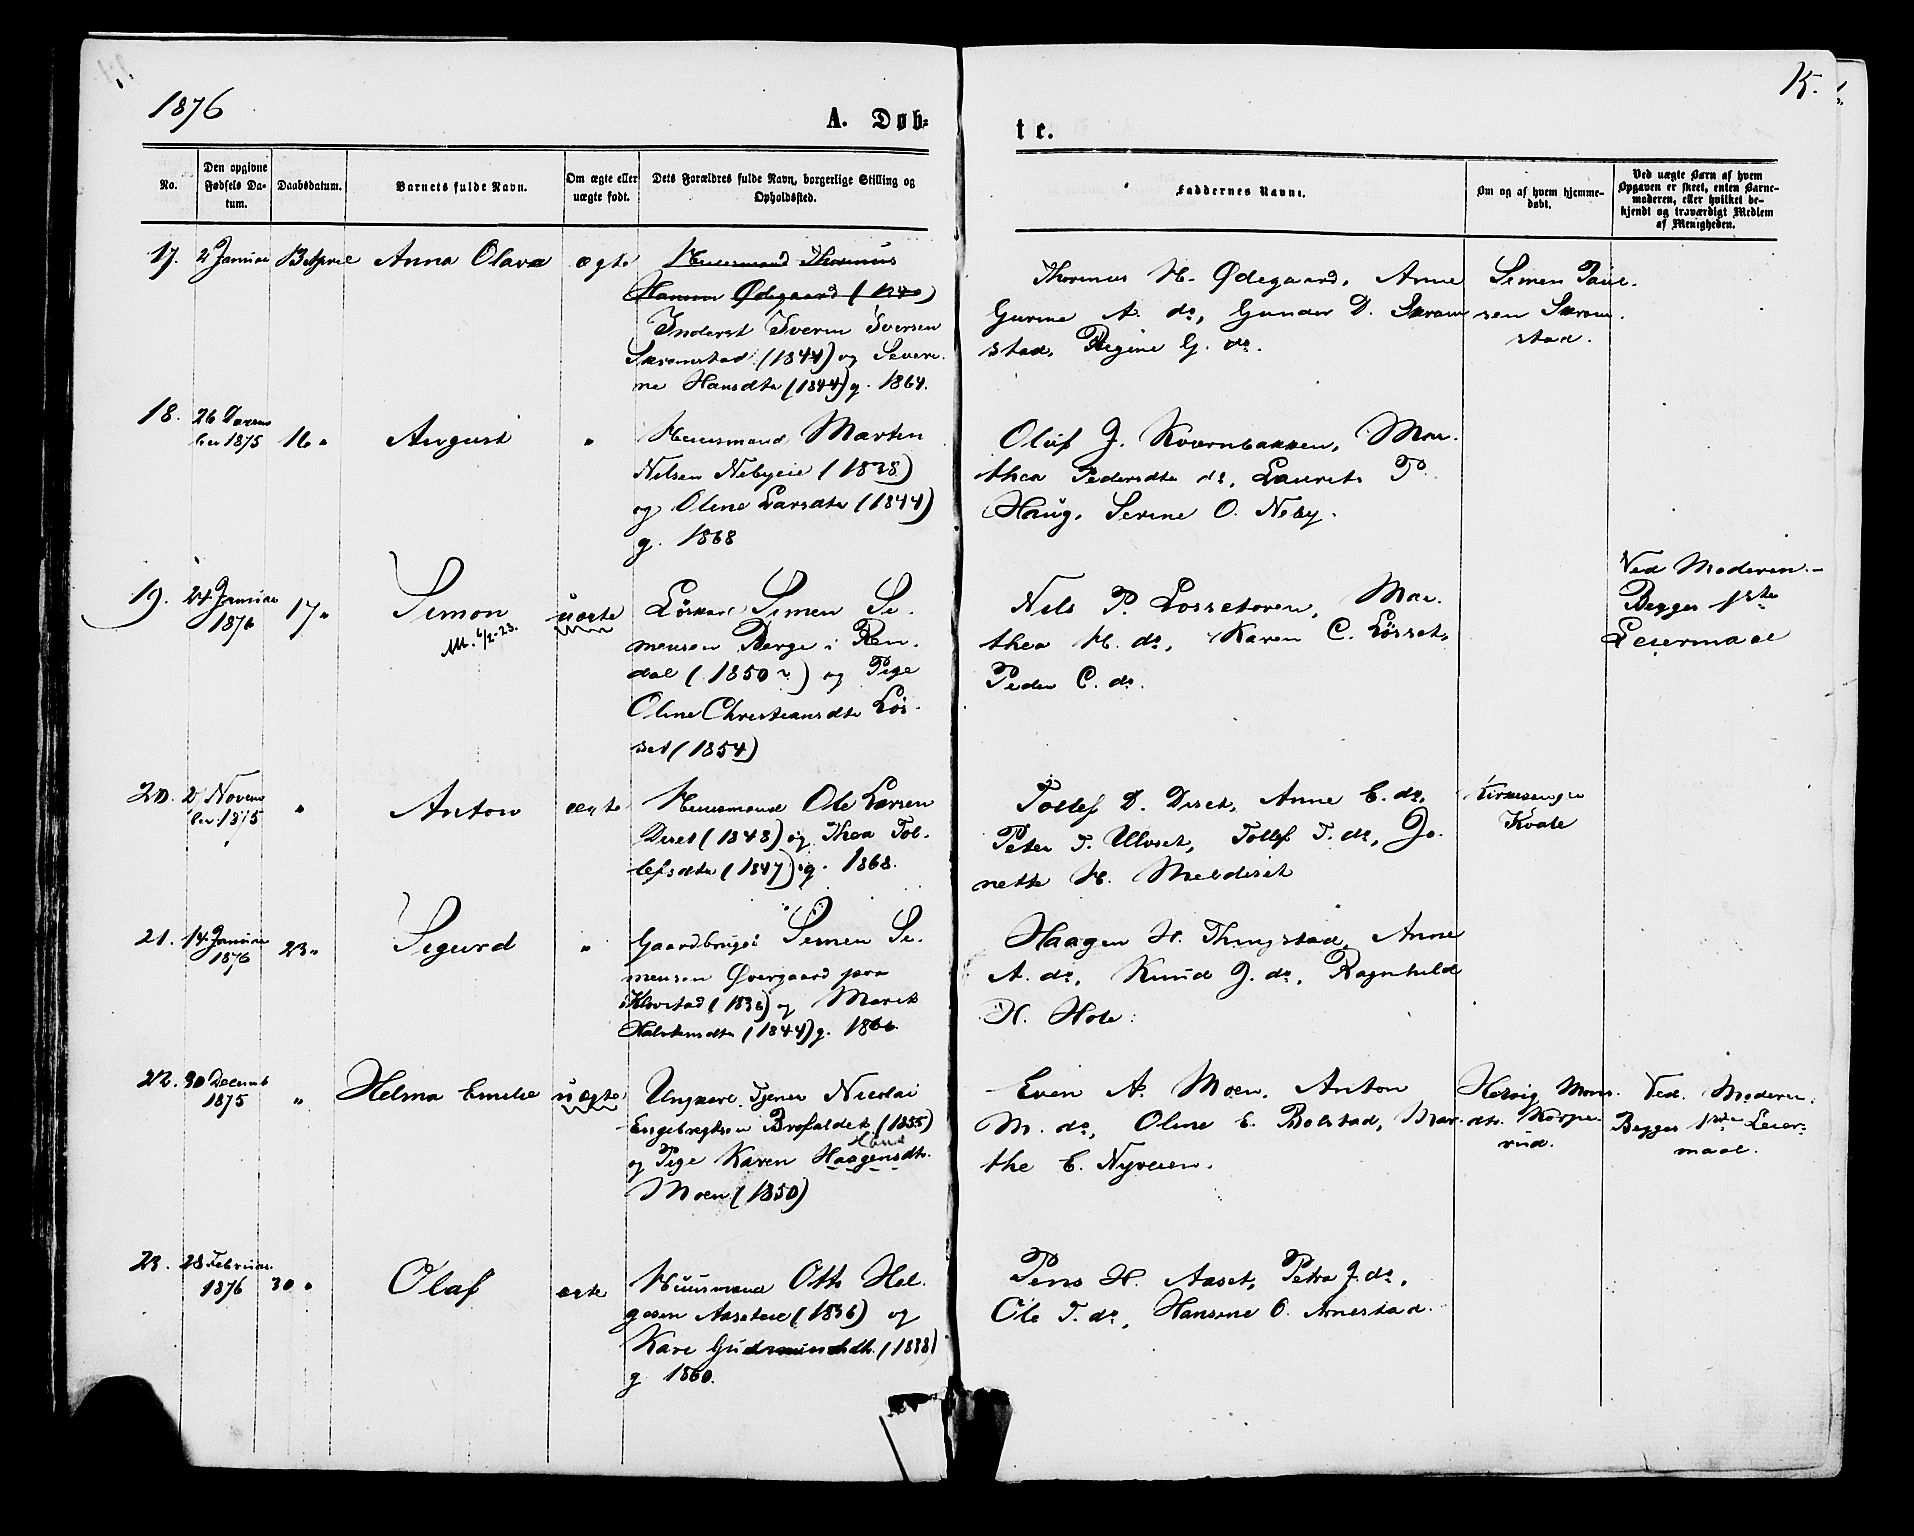 1876
15.
A. Døb-
te.
No.
Den opgivne Fødsels Datum.
Daabsdatum.
Barnets fulde Navn.
Om ægte eller uægte født.
Dets Forældres fulde Navn, borgerlige Stilling og Opholdssted.
Faddernes Navne.
Om og af hvem hjemmedøbt.
Ved uægte Børn af hvem Opgaven er skeet, enten Barnemoderen, eller hvilket bekjendt og troværdigt Medlem af Menigheden.
17. 2 Januar
Anna Olava
ægte
Huusmand Thorinus
Hansen Ødegaard (1840)
Inderst Iveren Iversen
Sxramstad (1844) og Severi-
ne Hansdtr (1844) g. 1864.
Thorinus H. Ødegaard, Anne
Gurine A. do, Gunder D. Skram
stad, Regine G. do.
Simen Paul-
sen Skram
stad.
18. 26 Novem
ber 1875
16 "
August
"
Huusmand Martin
Nilsen Nebyeie (1838)
og Oline Larsdtr (1844)
g. 1868
Oluf J. Kværnbakken, Mar-
thea Pedersdtr do, Laurits P.
Haug, Serine O. Neby.
19. 24 Januar
1876
17 "
Simon
uægte
Løskarl Simen Si-
mensen Berge i Ren-
dal (1850?) og Pige
Oline Christiansdtr Løs-
set (1854)
Nils P. Lossetoren, Mar-
thea H. do, Karen C. Løsset,
Peder C. do.
Ved Moderen.-
Begges 1ste
Leiermaal
20. 2 Novem
ber 1875
"
Anton
ægte
Huusmand Ole Larsen
Diset (1848) og Thea Tol-
lefsdtr (1847) g. 1868.
Tollef D. Diset, Anne E. do,
Peter T. Ulvset, Tollef T. do, Jo
nette H. Meldiset
Kirkesanger
Kvale
21. 14 Januar
1876
23 "
Sigurd
"
Gaardbruger Simen Si-
mensen Øvergaard paa
Kløvstad (1838) og Marit
Halstensdtr (1844) g. 1866
Haagen H. Thingstad, Anne
A. do, Knud J. do, Ragnhild
H. Hole.
22. 30 Decemb
1875
"
Helma Emilie
uægte
Ungkarl. Tjener Nicolai
Engebregtsen Brofaldet (1855)
og Pige Karen Haagensdtr.
Moen (1850)
Even A. Moen, Anton
M. do, Oline E. Bolstad, Mar-
the E. Nyveien.
Ved Moderen.
Begges 1ste Leier-
maal.
23. 28 Februar
1876
30 "
Olaf
ægte
Huusmand Otto Hel-
gesen Aaseteie (1836) og
Kari Gudmundsdtr. (1838)
g 1860.
Pens H. Aaset, Petra J. do,
Ole T. do, Hansine O. Arnestad.